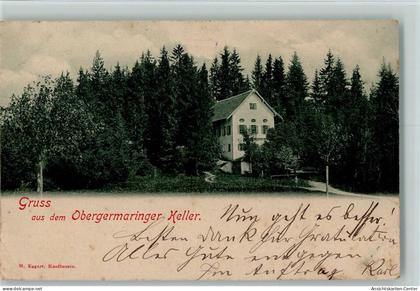 Gruss
aus dem Obergermaringer Keller.
Nun geht es besser!
Besten Dank für Gratulation
Alles Gute entgegen
Im Auftrag Karl
M. Eggart, Kaufbeuren.
Ansichtskarten-Center